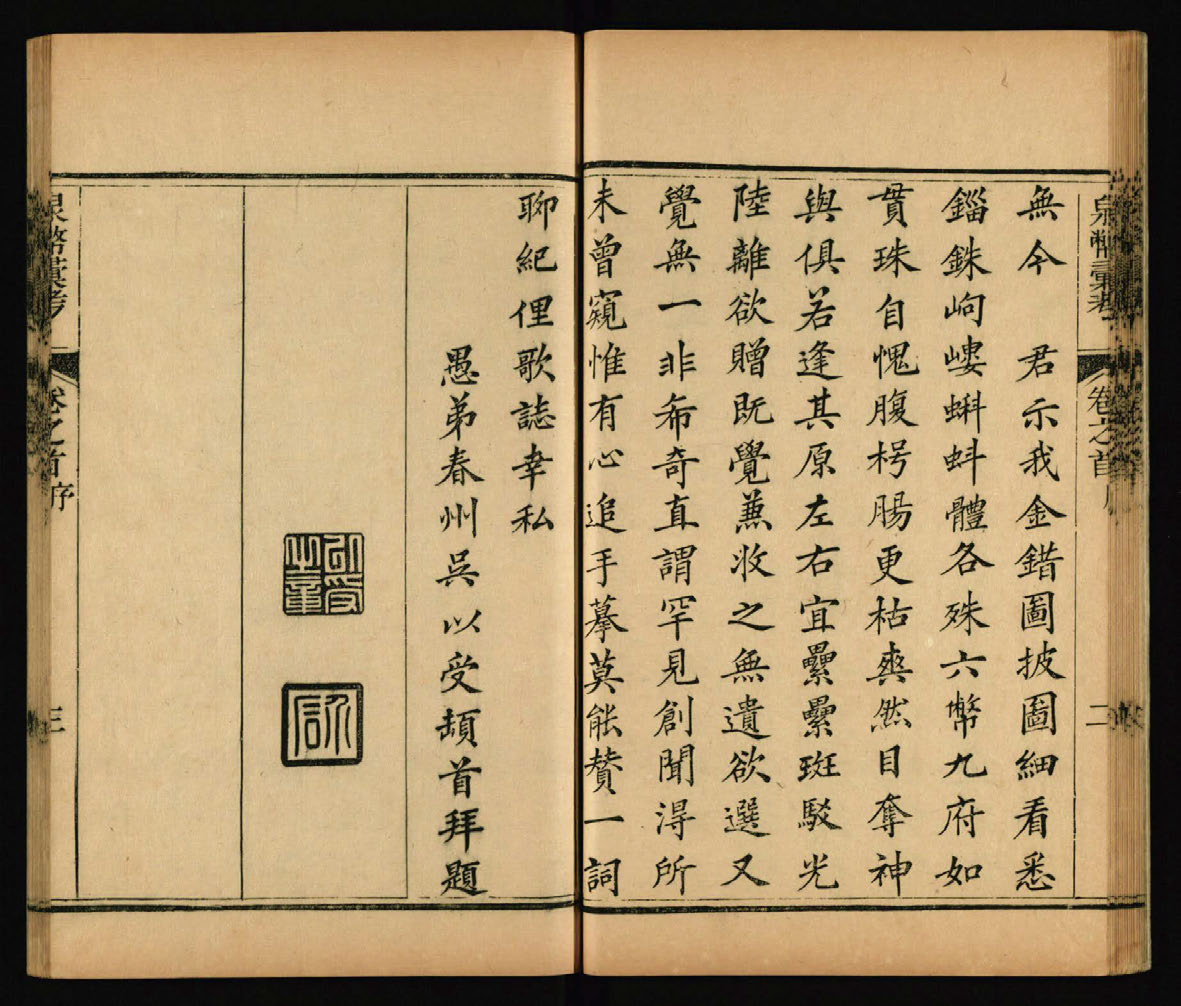 泉幣彙考 卷之首 序 二
無今 君示我金錯圖披圖細看悉
錙銖岣嶁蝌蚪體各殊六幣九府如
貫珠自愧腹枵腸更枯爽然目奪神
與俱若逢其原左右宜纍纍斑駁光
陸離欲贈既覺兼收之無遺欲選又
覺無一非希奇直謂罕見創聞淂所
未曾窺惟有心追手摹莫能贊一詞
聊紀俚歌誌幸私
愚弟春州吳以受頓首拜題
泉幣彙考 卷之首 序 三